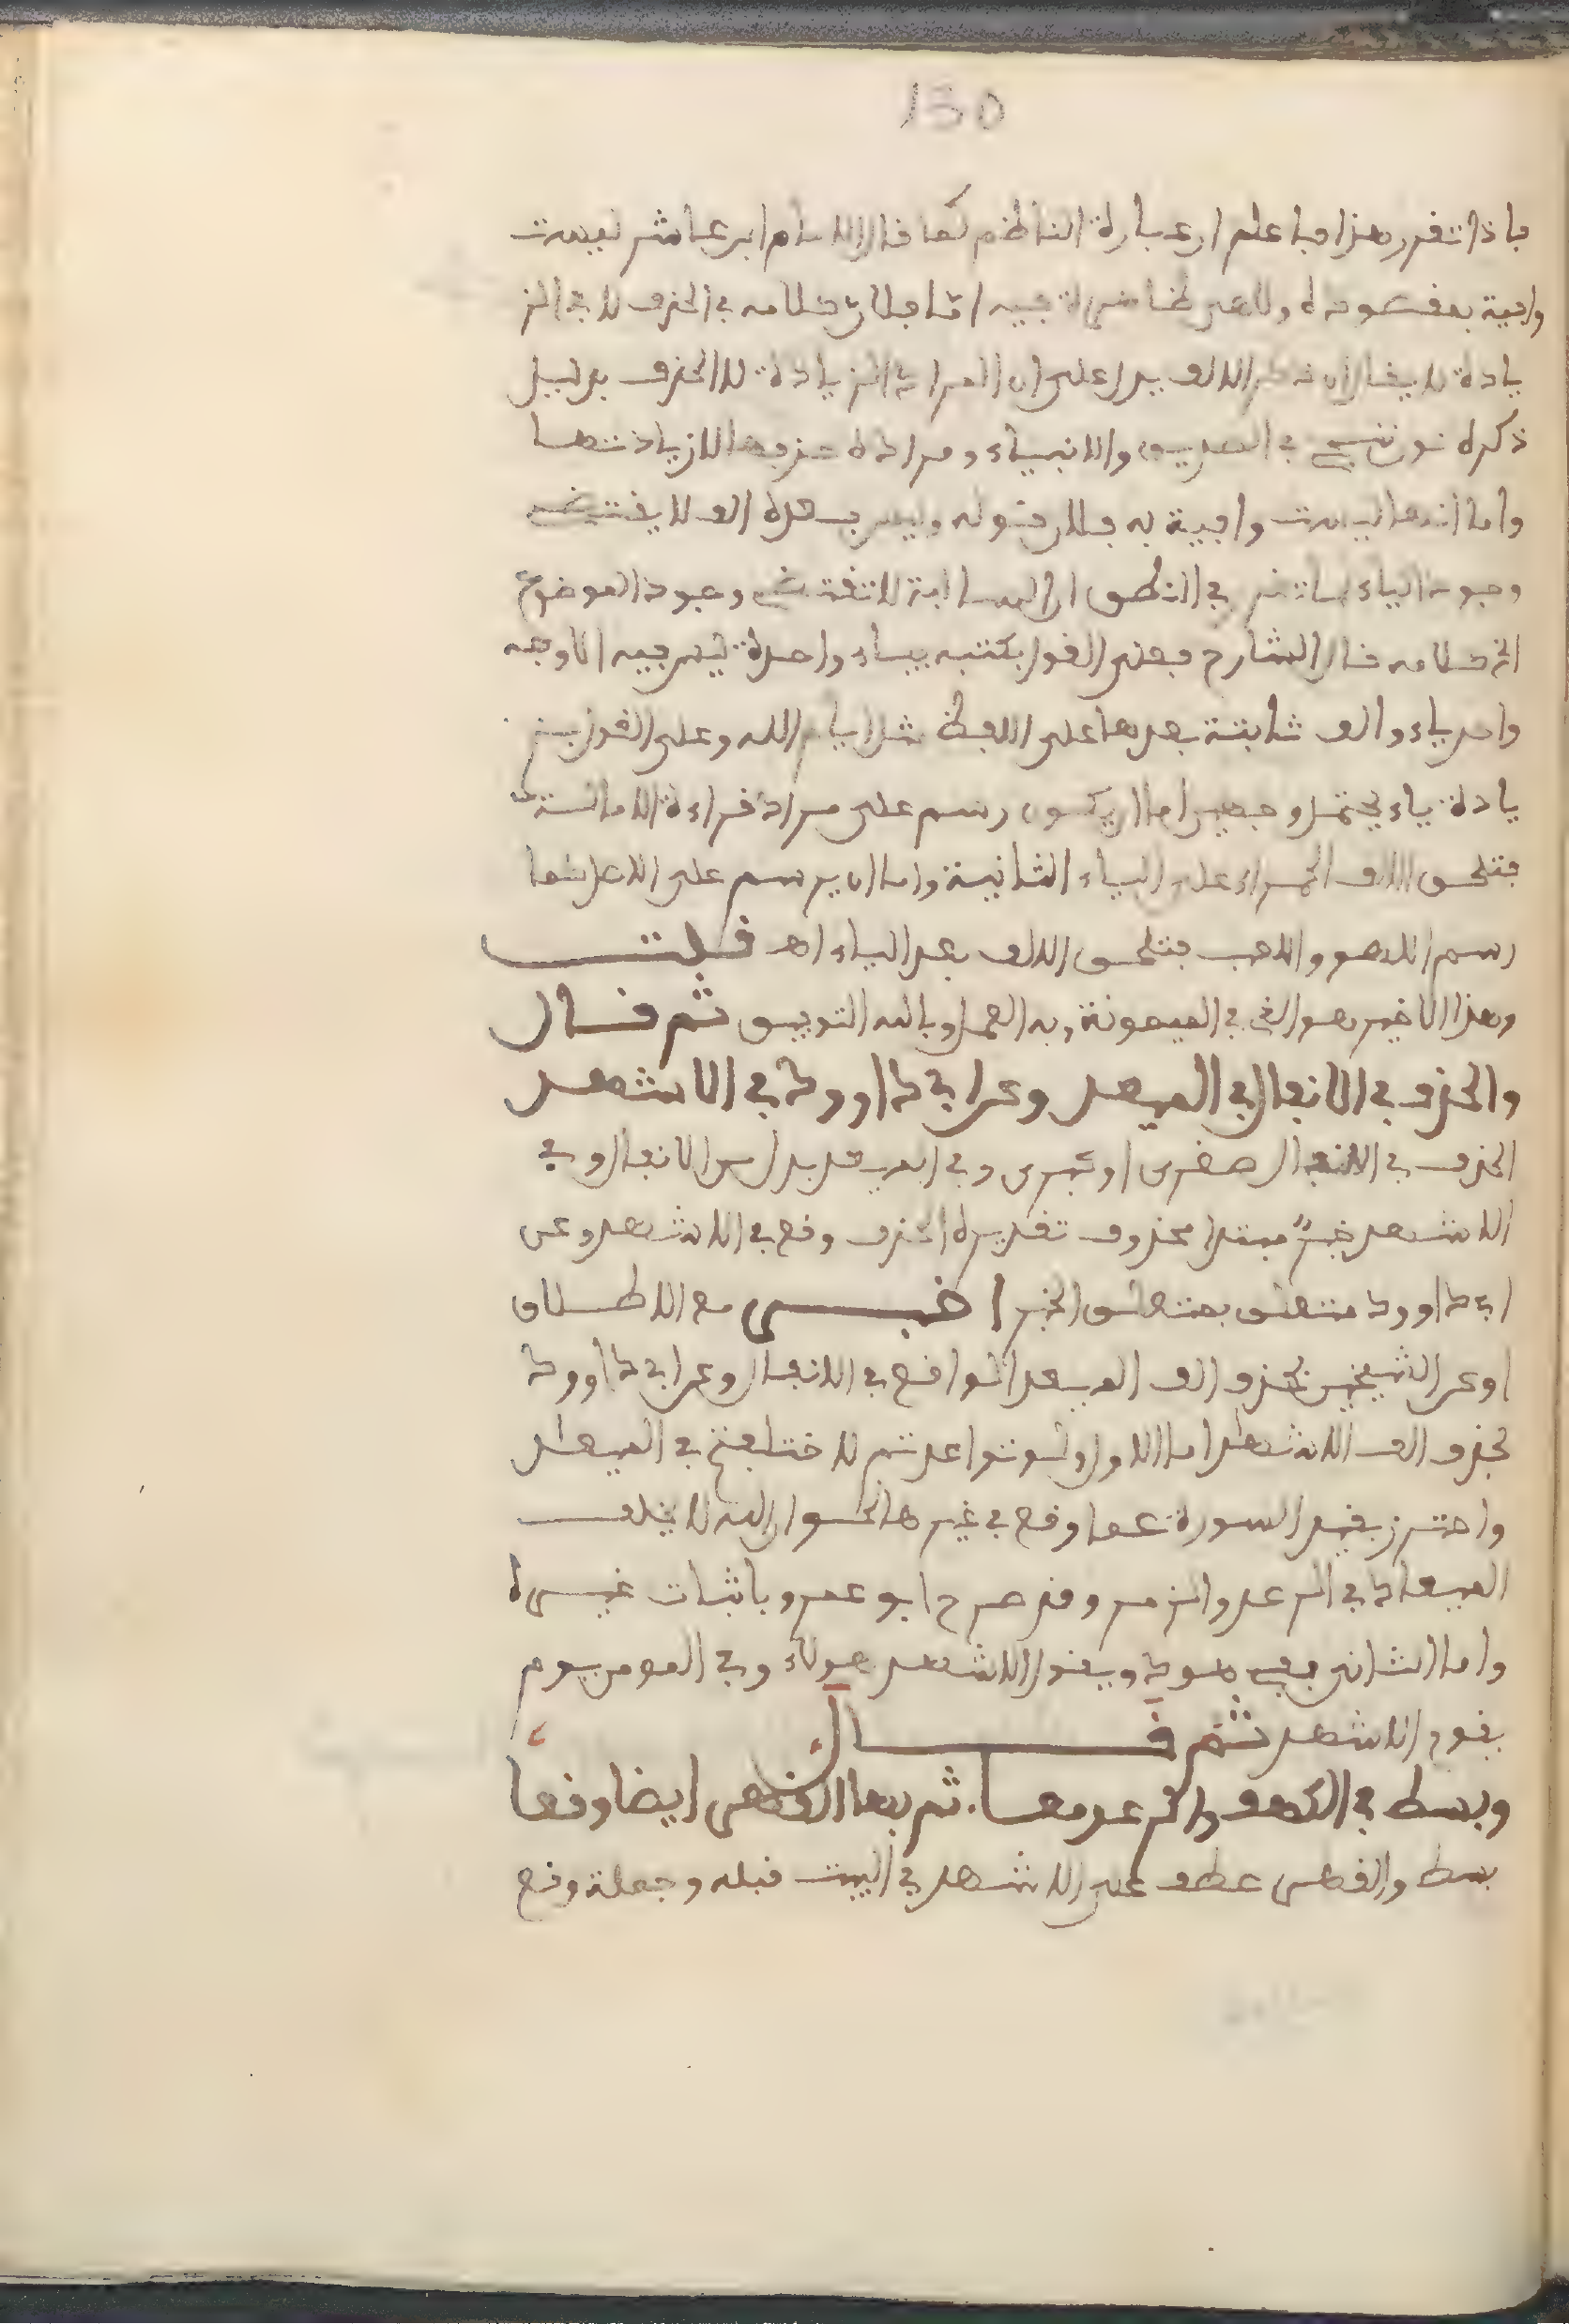 130
فاذا تقرر هذا فاعلم ان عبارة الناظم كما قال الامام ابن عاشر ليست
وافية بمقصوده ولا هي ظاهرة فيه اما فلان كلامه في الحذف لا في الز
يادة لا يقال ان ذكر الالف يدل على ان المراد الزيادة لا الحذف بدليل
ذكره نون ننجي في الصديق والانبياء ومراده حذفها لا زيادتها
واما انها ليست وافية به فلان قوله وليس بعده الف لا يقتضي
وجود الياء ساتغ في النطق ان السالبة لا تقتضي وجود الموضوع
الخ كلامه قال الشارح فعلى القول بكتبه بياء واحدة ليس فيه الا وجه
واحد ياء والف ثابتة بعدها على اللفظ مثل ايام الله وعلى القول بز
يادة ياء يحتمل وجهين اما ان يكون رسم على مراد قراءة الامالة
فتلحق الالف الحمراء على الياء الثانية واما ان يرسم على الاصل كما
رسم اللهو واللعب فتلحق الالف بعد الياء اهـ قلت
وهذا الاخير هو الذي في الميمونة وبه العمل وبالله التوفيق ثم قال
والحذف في الانفال في الميعد وعن ابي داوود في الاشهد
الحذف في الانفال صغرى او كبرى وفي الميعد بدل من الانفال وفي
الاشهد خبر مبتدا محذوف تقديره الحذف وقع في الاشهد وعن
ابي داوود متعلق بمتعلق الخبر اخبر مع الاطلاق
او عن الشيخين بحذف الف الميعد الواقع في الانفال وعن ابي داوود
بحذف الف الاشهاد اما الاول ولو تواعدتم لاختلفتم في الميعد
واحترز بقيد السورة عما وقع في غيرها نحو ان الله لا يخلف
الميعاد في الرعد والزمر وقد صرح ابو عمرو باثبات غيره
واما الثاني ففي هود ويقول الاشهد هولاء وفي المومن يوم
يقوم الاشهد ثم قال
وبسط في الكهف والرعد معا. ثم بها القهر ايضا وقعا
بسط والقهر عطف على الاشهد في البيت قبله وجملة وقع